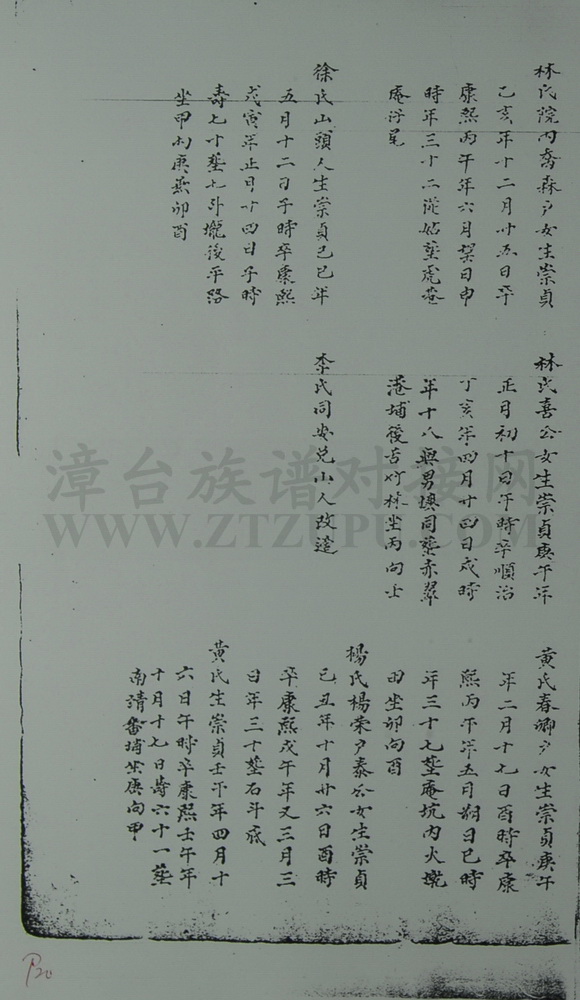 林氏院內喬森户女生崇貞
乙亥年十二月廿五日卒
康熙丙午年六月望日申
時年三十二從姑葬虎巷
庵仔尾
徐氏山頭人生崇貞己巳年
五月十二日午時卒康熙
戊寅年正月廿四日子時
壽七十葬七斗壠後平路
坐甲向庚兼卯酉
林氏喜公女生崇貞庚午年
正月初十日午時卒順治
丁亥年四月廿四日戌時
年十八與男墺同葬赤翠
港埔後吉竹林坐丙向壬
李氏同安兑山人改適
黄氏春卿户女生崇貞庚午
年二月十七日酉時卒康
熙丙午年五月朔日巳時
年三十七葬庵坑內火燒
田坐卯向酉
楊氏楊荣户泰公女生崇貞
己丑年十月廿六日酉時
卒康熙戊午年又三月三
日年三十葬石斗底
黄氏生崇貞壬午年四月十
六日午時卒康熙壬午年
十月十七日壽六十一葬
南清番埔坐庚向甲
漳台族谱对接网
WWW.ZTZUPU.COM
P20